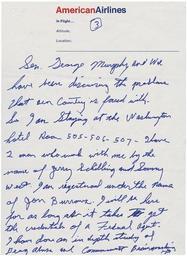 AmericanAirlines
In Flight...
Altitude;
Location;
3
Sen. George Murphy and We
have been discussing the problems
that our Country is faced with.
So I am Staying at the Washington
hotel Room 505-506-507 - I have
2 men who work with me by the
name of Jerry Schilling and Sonny
West. I am registered under the name
of Jon Burrows. I will be here
for as long as it takes to get
the credentials of a Federal Agent.
I have done an in depth study of
Drug Abuse and Communist Brainwashing